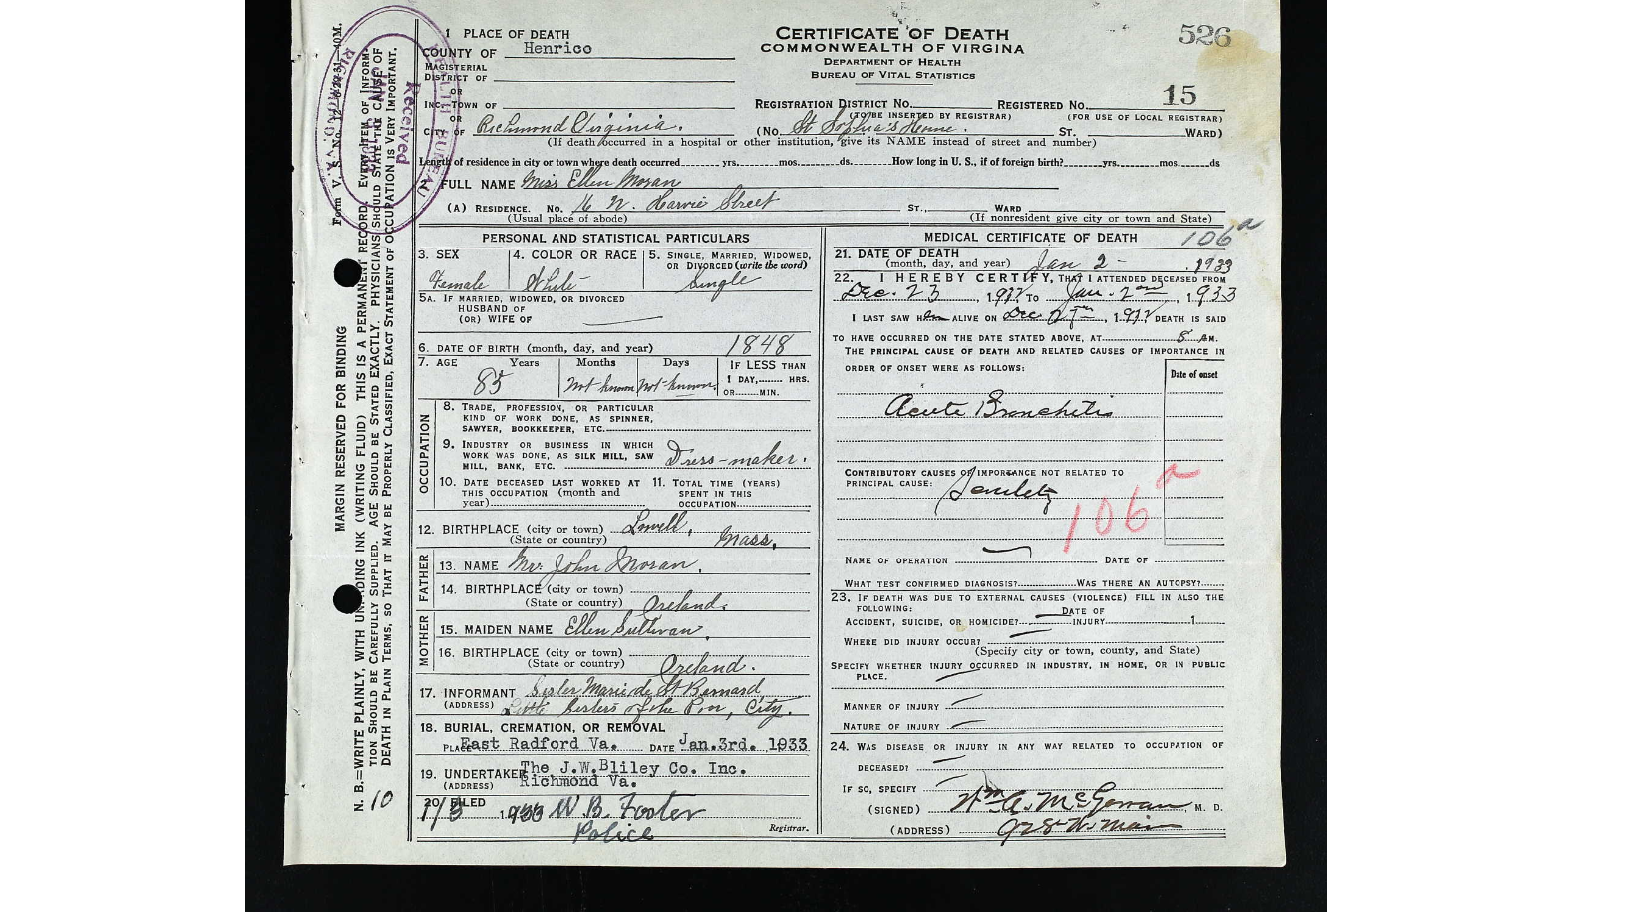 526
CERTIFICATE OF DEATH
COMMONWEALTH OF VIRGINA
DEPARTMENT OF HEALTH
BUREAU OF VITAL STATISTICS
1 PLACE OF DEATH
COUNTY OF Henrico
MAGISTERIAL DISTRICT OF
OR
INC. TOWN OF
OR
CITY OF Richmond Virginia.
REGISTRATION DISTRICT No. REGISTERED No. 15
(TO BE INSERTED BY REGISTRAR) (FOR USE OF LOCAL REGISTRAR)
(No. St Sophia's Home. ST. WARD)
(If death occurred in a hospital or other institution, give its NAME instead of street and number)
Length of residence in city or town where death occurred yrs. mos. ds. How long in U. S., if of foreign birth? yrs. mos. ds
2 FULL NAME Miss Ellen Moran
(A) RESIDENCE. No. 16 N. Harvie Street ST., WARD
(Usual place of abode) (If nonresident give city or town and State)
PERSONAL AND STATISTICAL PARTICULARS
3. SEX Female
4. COLOR OR RACE White
5. SINGLE, MARRIED, WIDOWED, OR DIVORCED (write the word) Single
5A. IF MARRIED, WIDOWED, OR DIVORCED
HUSBAND OF
(OR) WIFE OF
6. DATE OF BIRTH (month, day, and year) 1848
7. AGE Years Months Days
85 Not known Not known
IF LESS THAN
1 DAY, HRS.
OR MIN.
OCCUPATION
8. TRADE, PROFESSION, OR PARTICULAR
KIND OF WORK DONE, AS SPINNER,
SAWYER, BOOKKEEPER, ETC.
9. INDUSTRY OR BUSINESS IN WHICH
WORK WAS DONE, AS SILK MILL, SAW
MILL, BANK, ETC. Dress-maker.
10. DATE DECEASED LAST WORKED AT
THIS OCCUPATION (month and
year)
11. TOTAL TIME (YEARS)
SPENT IN THIS
OCCUPATION
12. BIRTHPLACE (city or town) Lowell,
(State or country) Mass,
FATHER
13. NAME Mr. John Moran.
14. BIRTHPLACE (city or town)
(State or country) Ireland.
MOTHER
15. MAIDEN NAME Ellen Sullivan,
16. BIRTHPLACE (city or town)
(State or country) Ireland.
17. INFORMANT Sister Marie de St Bernard,
(ADDRESS) Little Sisters of the Poor, City.
18. BURIAL, CREMATION, OR REMOVAL
PLACE East Radford Va. DATE Jan.3rd. 1933
19. UNDERTAKER The J.W.Bliley Co. Inc.
(ADDRESS) Richmond Va.
20. FILED 1/3 1933 W. B. Foster
Police Registrar.
MEDICAL CERTIFICATE OF DEATH 106 a
21. DATE OF DEATH
(month, day, and year) Jan 2- , 1933
22. I HEREBY CERTIFY, THAT I ATTENDED DECEASED FROM
Dec. 23, 1932 TO Jan. 2nd, 1933
I LAST SAW HER ALIVE ON Dec , 1932 DEATH IS SAID
TO HAVE OCCURRED ON THE DATE STATED ABOVE, AT 8 AM.
THE PRINCIPAL CAUSE OF DEATH AND RELATED CAUSES OF IMPORTANCE IN
ORDER OF ONSET WERE AS FOLLOWS:
Date of onset
Acute Bronchitis
CONTRIBUTORY CAUSES OF IMPORTANCE NOT RELATED TO
PRINCIPAL CAUSE:
Senility
106 a
NAME OF OPERATION DATE OF
WHAT TEST CONFIRMED DIAGNOSIS? WAS THERE AN AUTOPSY?
23. IF DEATH WAS DUE TO EXTERNAL CAUSES (VIOLENCE) FILL IN ALSO THE
FOLLOWING:
ACCIDENT, SUICIDE, OR HOMICIDE? DATE OF INJURY 1
WHERE DID INJURY OCCUR?
(Specify city or town, county, and State)
SPECIFY WHETHER INJURY OCCURRED IN INDUSTRY, IN HOME, OR IN PUBLIC
PLACE.
MANNER OF INJURY
NATURE OF INJURY
24. WAS DISEASE OR INJURY IN ANY WAY RELATED TO OCCUPATION OF
DECEASED?
IF SO, SPECIFY
(SIGNED) Wm A. McGowan, M. D.
(ADDRESS) 928 W. Main
MARGIN RESERVED FOR BINDING
N. B.=WRITE PLAINLY, WITH UNFADING INK (WRITING FLUID) THIS IS A PERMANENT RECORD. EVERY ITEM OF INFORMA-
TION SHOULD BE CAREFULLY SUPPLIED. AGE SHOULD BE STATED EXACTLY. PHYSICIANS SHOULD STATE THE CAUSE OF
DEATH IN PLAIN TERMS, SO THAT IT MAY BE PROPERLY CLASSIFIED, EXACT STATEMENT OF OCCUPATION IS VERY IMPORTANT.
10
Received
HEALTH BUREAU
RICHMOND, VA.